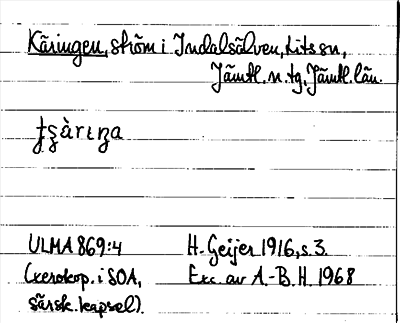 Käringen, ström i Indalsälven, Lits sn,
Jämtl. n. tg, Jämtl. län.
ʈʂàrɩŋa
ULMA 869:4 H. Geijer 1916, s. 3.
(xerokop. i SOA, Exc. av A.-B. H. 1968
särsk. kapsel).